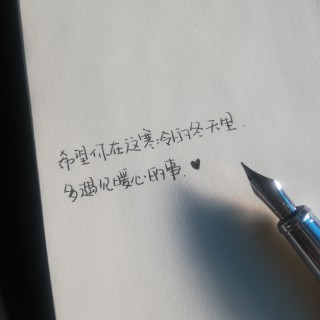 希望你在这寒冷的冬天里.
多遇见暖心的事.♥